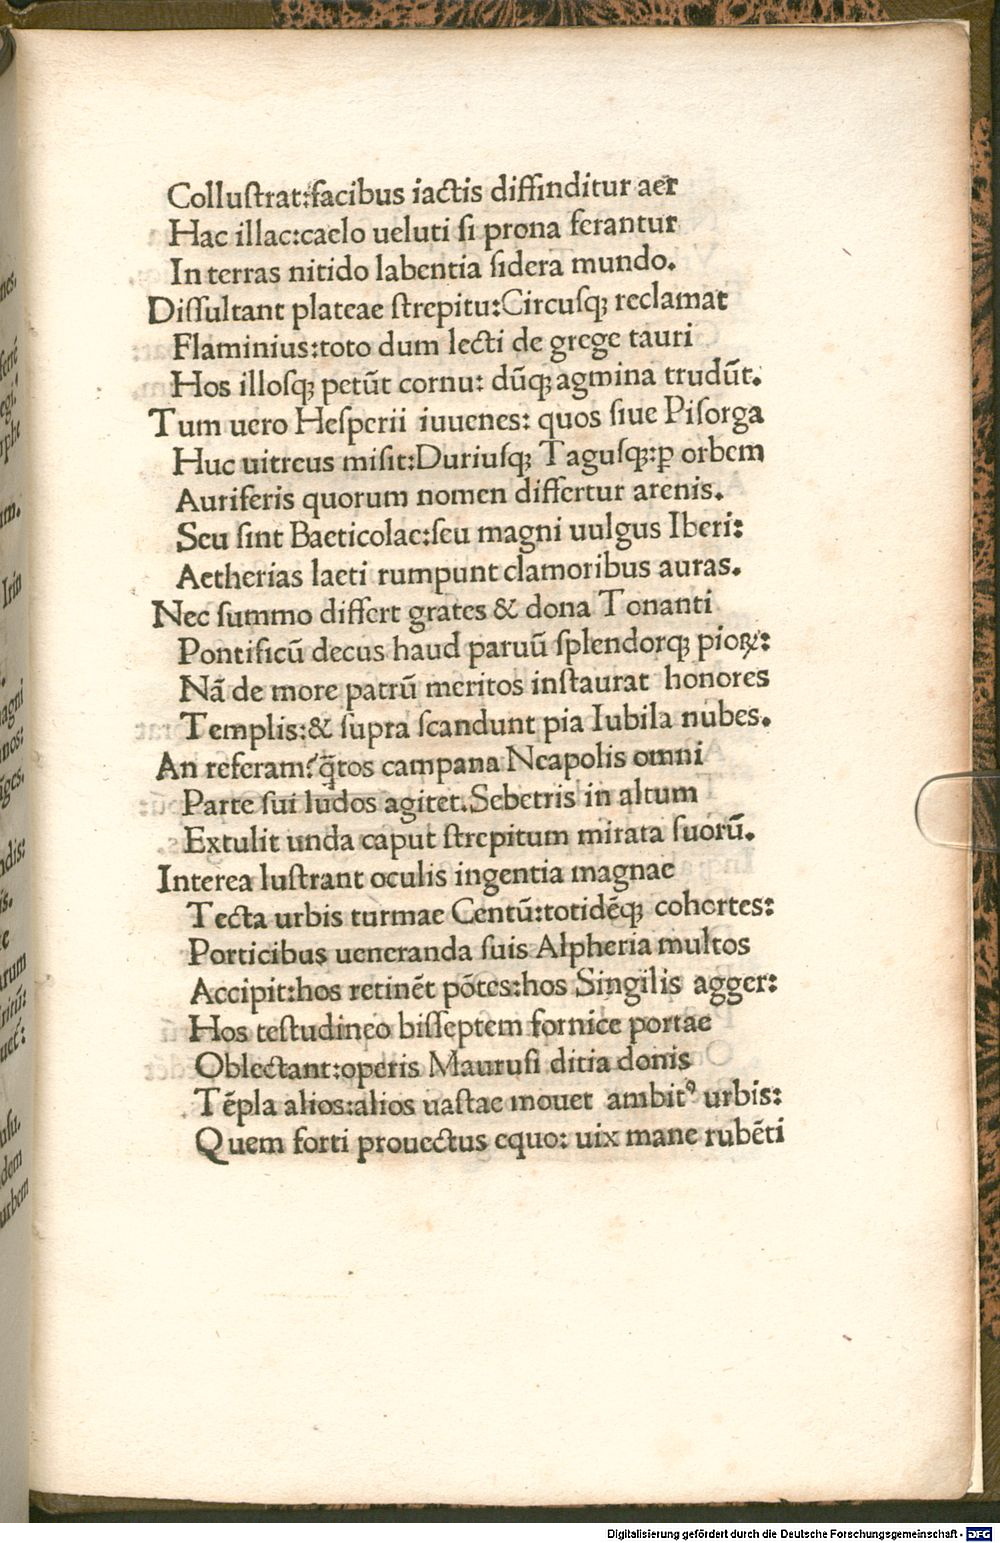 Colluſtrat:facibus iactis diffinditur aer
Hac illac:caelo ueluti ſi prona ferantur
In terras nitido labentia ſidera mundo.
Diſſultant plateae ſtrepitu:Circuſqꝫ reclamat
Flaminius:toto dum lecti de grege tauri
Hos illoſqꝫ petūt cornu: dūqꝫ agmina trudūt.
Tum uero Heſperii iuuenes: quos ſiue Piſorga
Huc uitreus miſit:Duriuſqꝫ Taguſqꝫ:ꝑ orbem
Auriferis quorum nomen differtur arenis.
Seu ſint Baeticolae:ſeu magni uulgus Iberi:
Aetherias laeti rumpunt clamoribus auras.
Nec ſummo differt grates & dona Tonanti
Pontificū decus haud paruū ſplendorqꝫ pioꝝ:
Nā de more patrū meritos inſtaurat honores
Templis:& ſupra ſcandunt pia Iubila nubes.
An referam?q̄tos campana Neapolis omni
Parte ſui ludos agitet.Sebetris in altum
Extulit unda caput ſtrepitum mirata ſuorū.
Interea luſtrant oculis ingentia magnae
Tecta urbis turmae Centū:totidēqꝫ cohortes:
Porticibus ueneranda ſuis Alpheria multos
Accipit:hos retinēt pōtes:hos Singilis agger:
Hos teſtudineo biſſeptem fornice portae
Oblectant:operis Mauruſi ditia donis
Tēpla alios:alios uaſtae mouet ambitꝰ urbis:
Quem forti prouectus equo: uix mane rubēti
Digitalisierung gefördert durch die Deutsche Forschungsgemeinschaft - DFG